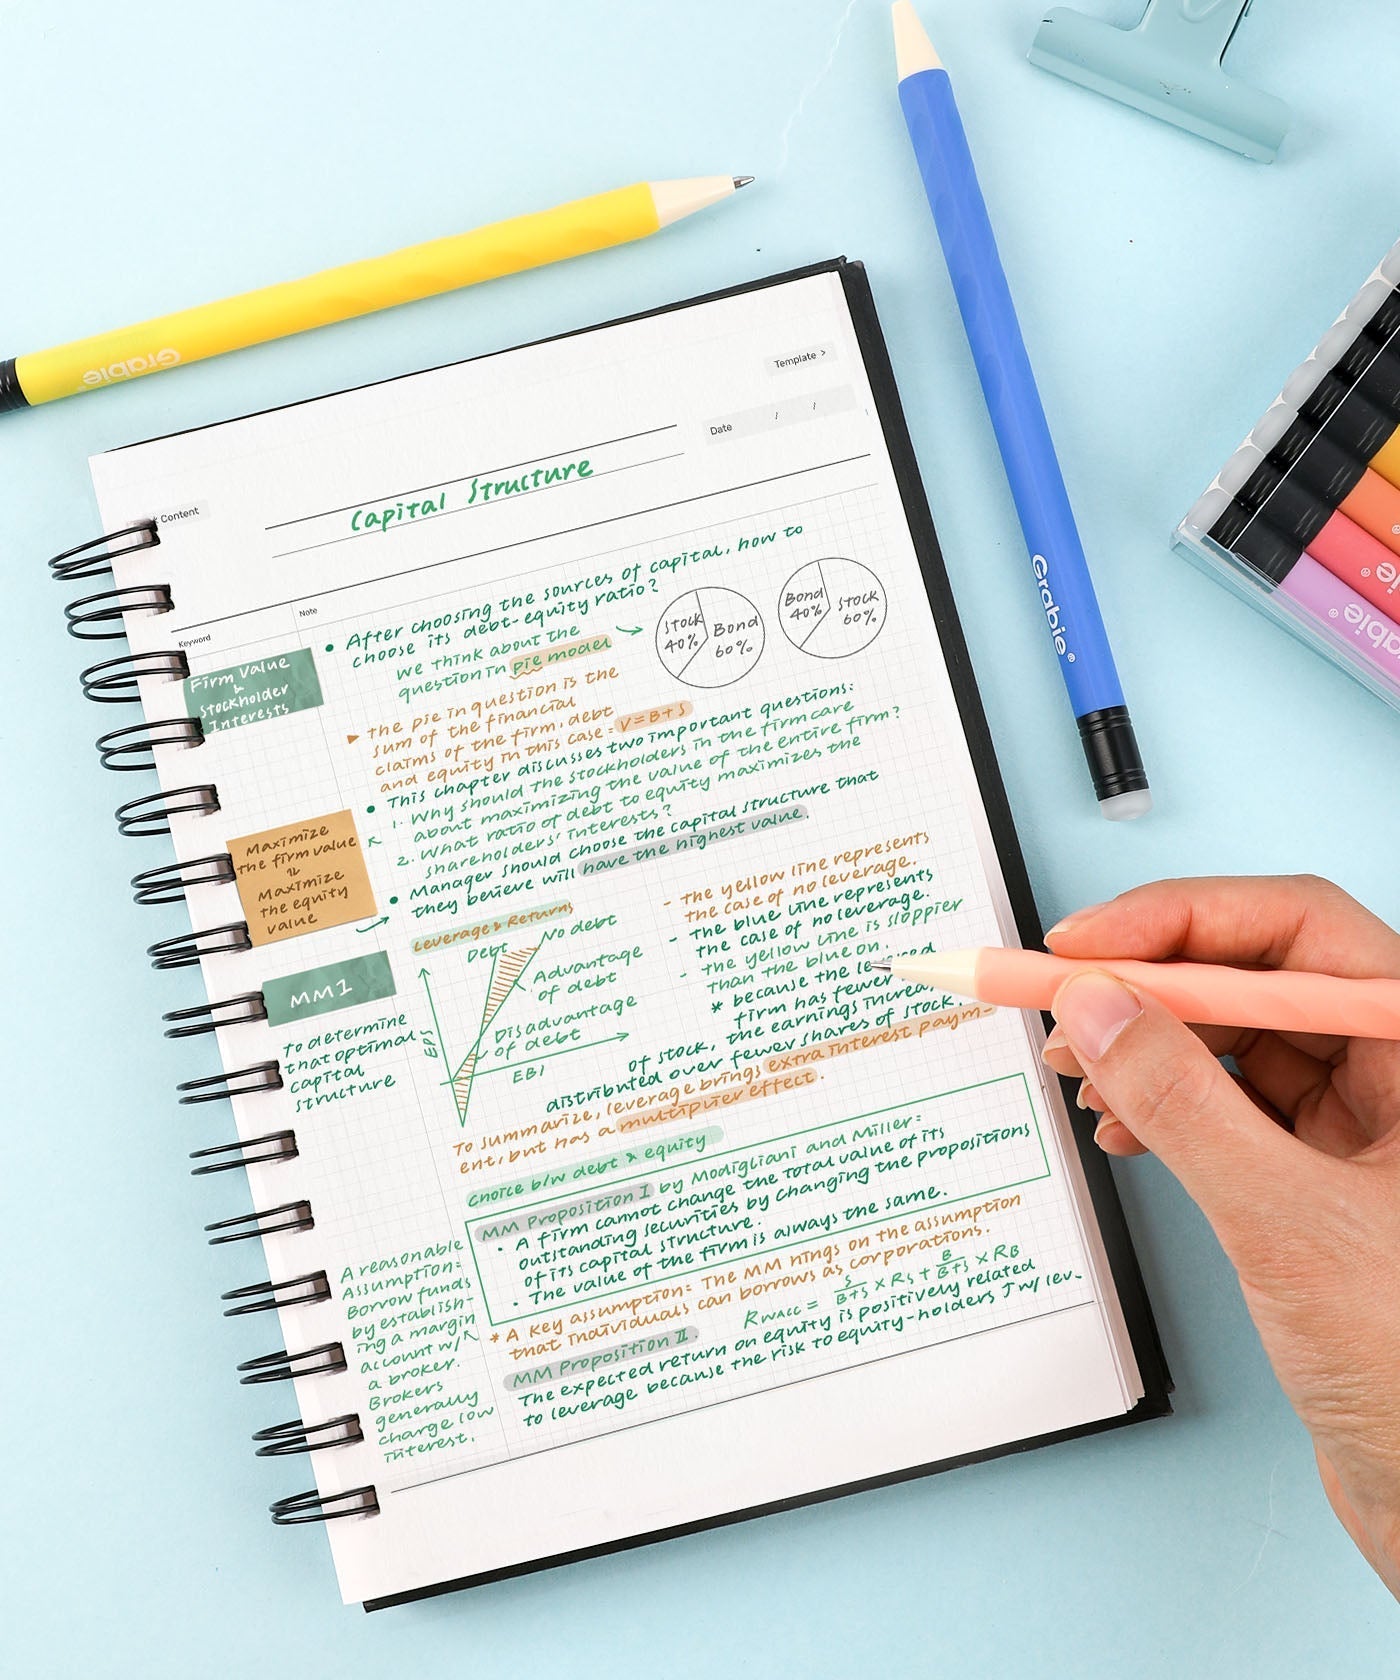 Grabie®
Grabie®
Grabie®
Template >
Date / /
Content
Capital Structure
Keyword
Note
Firm Value
&
Stockholder
Interests
• After choosing the sources of capital, how to
choose its debt-equity ratio?
we think about the
question in pie model
Stock
40%
Bond
60%
Bond
40%
Stock
60%
▶ the pie in question is the
sum of the financial
claims of the firm, debt
and equity in this case = V = B + S
• This chapter discusses two important questions:
1. Why should the stockholders in the firm care
about maximizing the value of the entire firm?
2. What ratio of debt to equity maximizes the
shareholders' interests?
• Manager should choose the capital structure that
they believe will have the highest value.
Maximize
the firm value
Maximize
the equity
value
Leverage & Returns
Debt
No debt
Advantage
of debt
Disadvantage
of debt
EPS
EBI
- the yellow line represents
the case of no leverage.
- the blue line represents
the case of no leverage.
- the yellow line is sloppier
than the blue on.
* because the
firm has fewer
of stock, the earnings
distributed over fewer shares of stock.
To summarize, leverage brings extra interest paym-
ent, but has a multiplier effect.
MM1
To determine
that optimal
capital
structure
choice b/w debt & equity
MM Proposition I by Modigliani and Miller:
• A firm cannot change the total value of its
outstanding securities by changing the propositions
of its capital structure.
• The value of the firm is always the same.
* A key assumption: The MM hings on the assumption
that individuals can borrows as corporations.
A reasonable
Assumption:
Borrow funds
by establish-
ing a margin
account w/
a broker.
Brokers
generally
charge low
interest.
MM Proposition II.
RWACC = S/B+S × RS + B/B+S × RB
The expected return on equity is positively related
to leverage because the risk to equity-holders ↑ w/ lev-